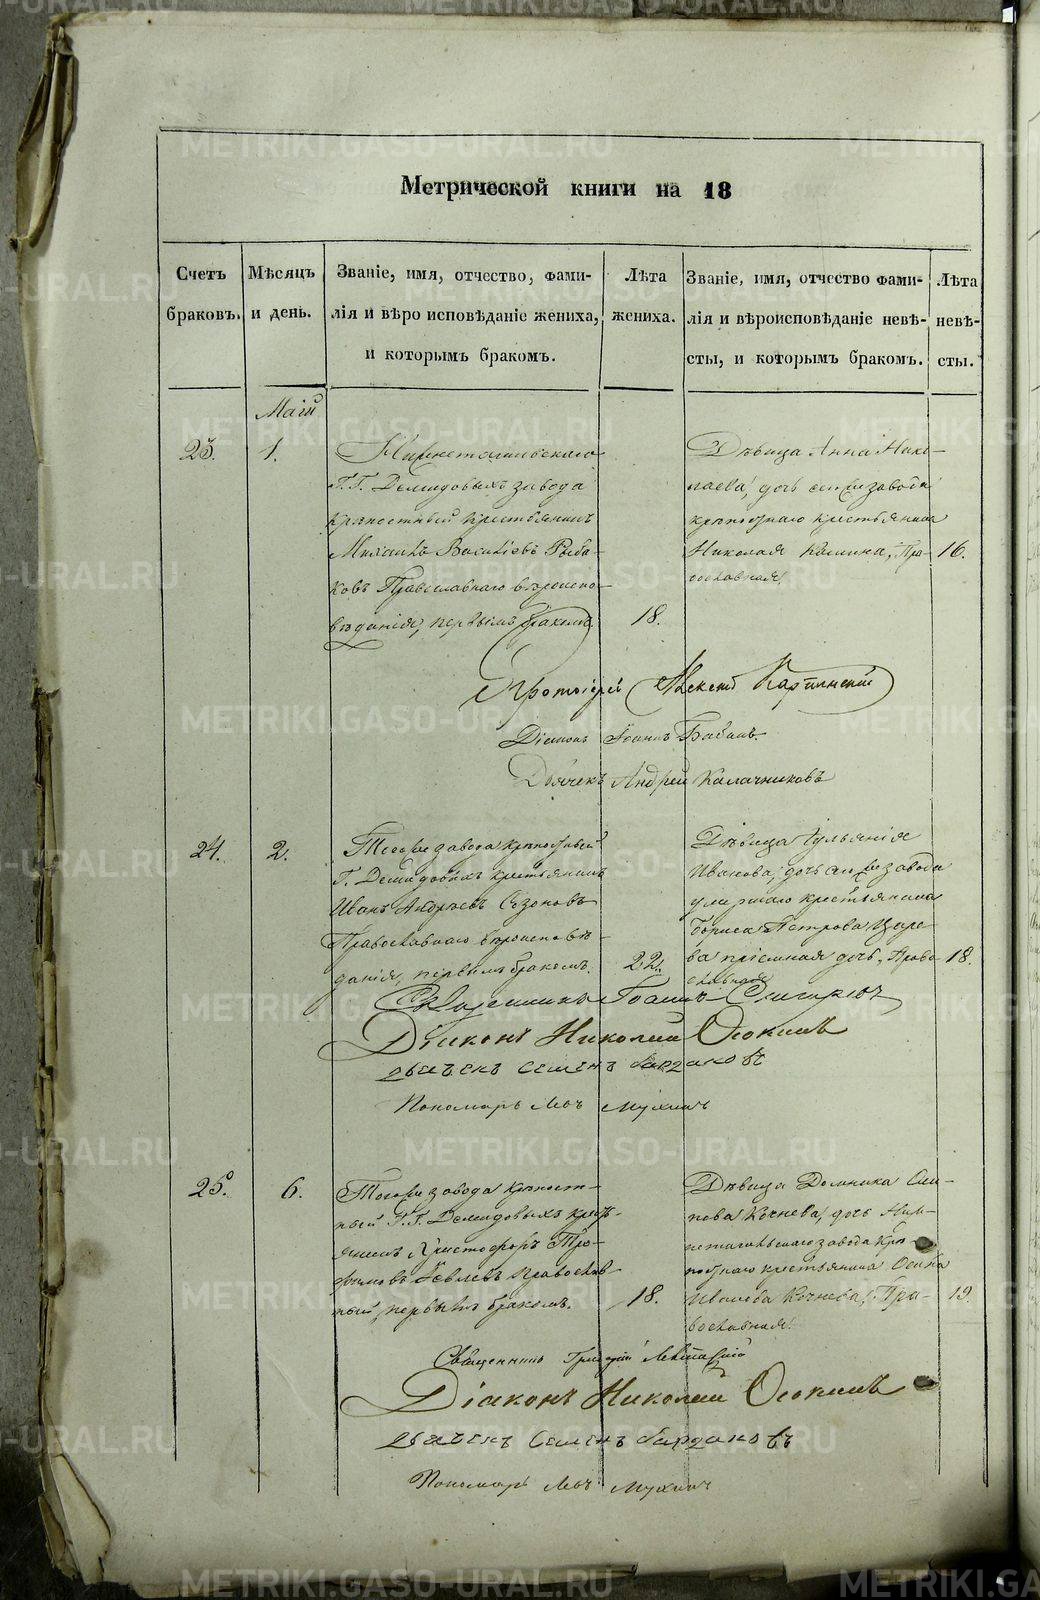 Метрической книги на 18
Счетъ браковъ.
Мѣсяцъ и день.
Званіе, имя, отчество, фами-
лія и вѣро исповѣданіе жениха,
и которымъ бракомъ.
Лѣта
жениха.
Званіе, имя, отчество фами-
лія и вѣроисповѣданіе невѣ-
сты, и которымъ бракомъ.
Лѣта
невѣ-
сты.
Маій
23.
1.
Нижнетагильскаго
Г.Г. Демидовыхъ завода
крѣпостный крестьянинъ
Михаилъ Васильевъ Рыба-
ковъ Православнаго вѣроиспо-
вѣданія, первымъ бракомъ.
18.
Дѣвица Анна Нико-
лаева, дочь завода
крѣпостнаго крестьянина
Николая Пра-
вославная.
16.
Протоіерей Карпинскій
Діаконъ Іоаннъ Бабинъ.
Дьячекъ Андрей Калачниковъ
24.
2.
Тогоже завода крѣпостный
Г. Демидовыхъ крестьянинъ
Иванъ Андреевъ Сѣзоновъ
Православнаго вѣроисповѣ-
данія, первымъ бракомъ.
22.
Дѣвица Іульянія
Иванова, дочь завода
умершаго крестьянина
Бориса Петрова Царе-
ва пріемная дочь, Право-
славная
18.
Священникъ Іоаннъ
Діаконъ Николай Осокинъ
Дьячекъ Семенъ Бардаковъ
Пономарь Левъ Мухинъ
25.
6.
Тогоже завода крѣпост-
ный Г.Г. Демидовыхъ кресть-
янинъ Христофоръ Тро-
фимовъ Іевлевъ Православ-
ный, первымъ бракомъ.
18.
Дѣвица Домника Оси-
пова Кочнева, дочь Ниж-
нетагильскаго завода крѣ-
постнаго крестьянина Осипа
Иванова Кочнева, Пра-
вославная.
19.
Священникъ Григорій
Діаконъ Николай Осокинъ
Дьячекъ Семенъ Бардаковъ
Пономарь Левъ Мухинъ
METRIKI.GASO-URAL.RU